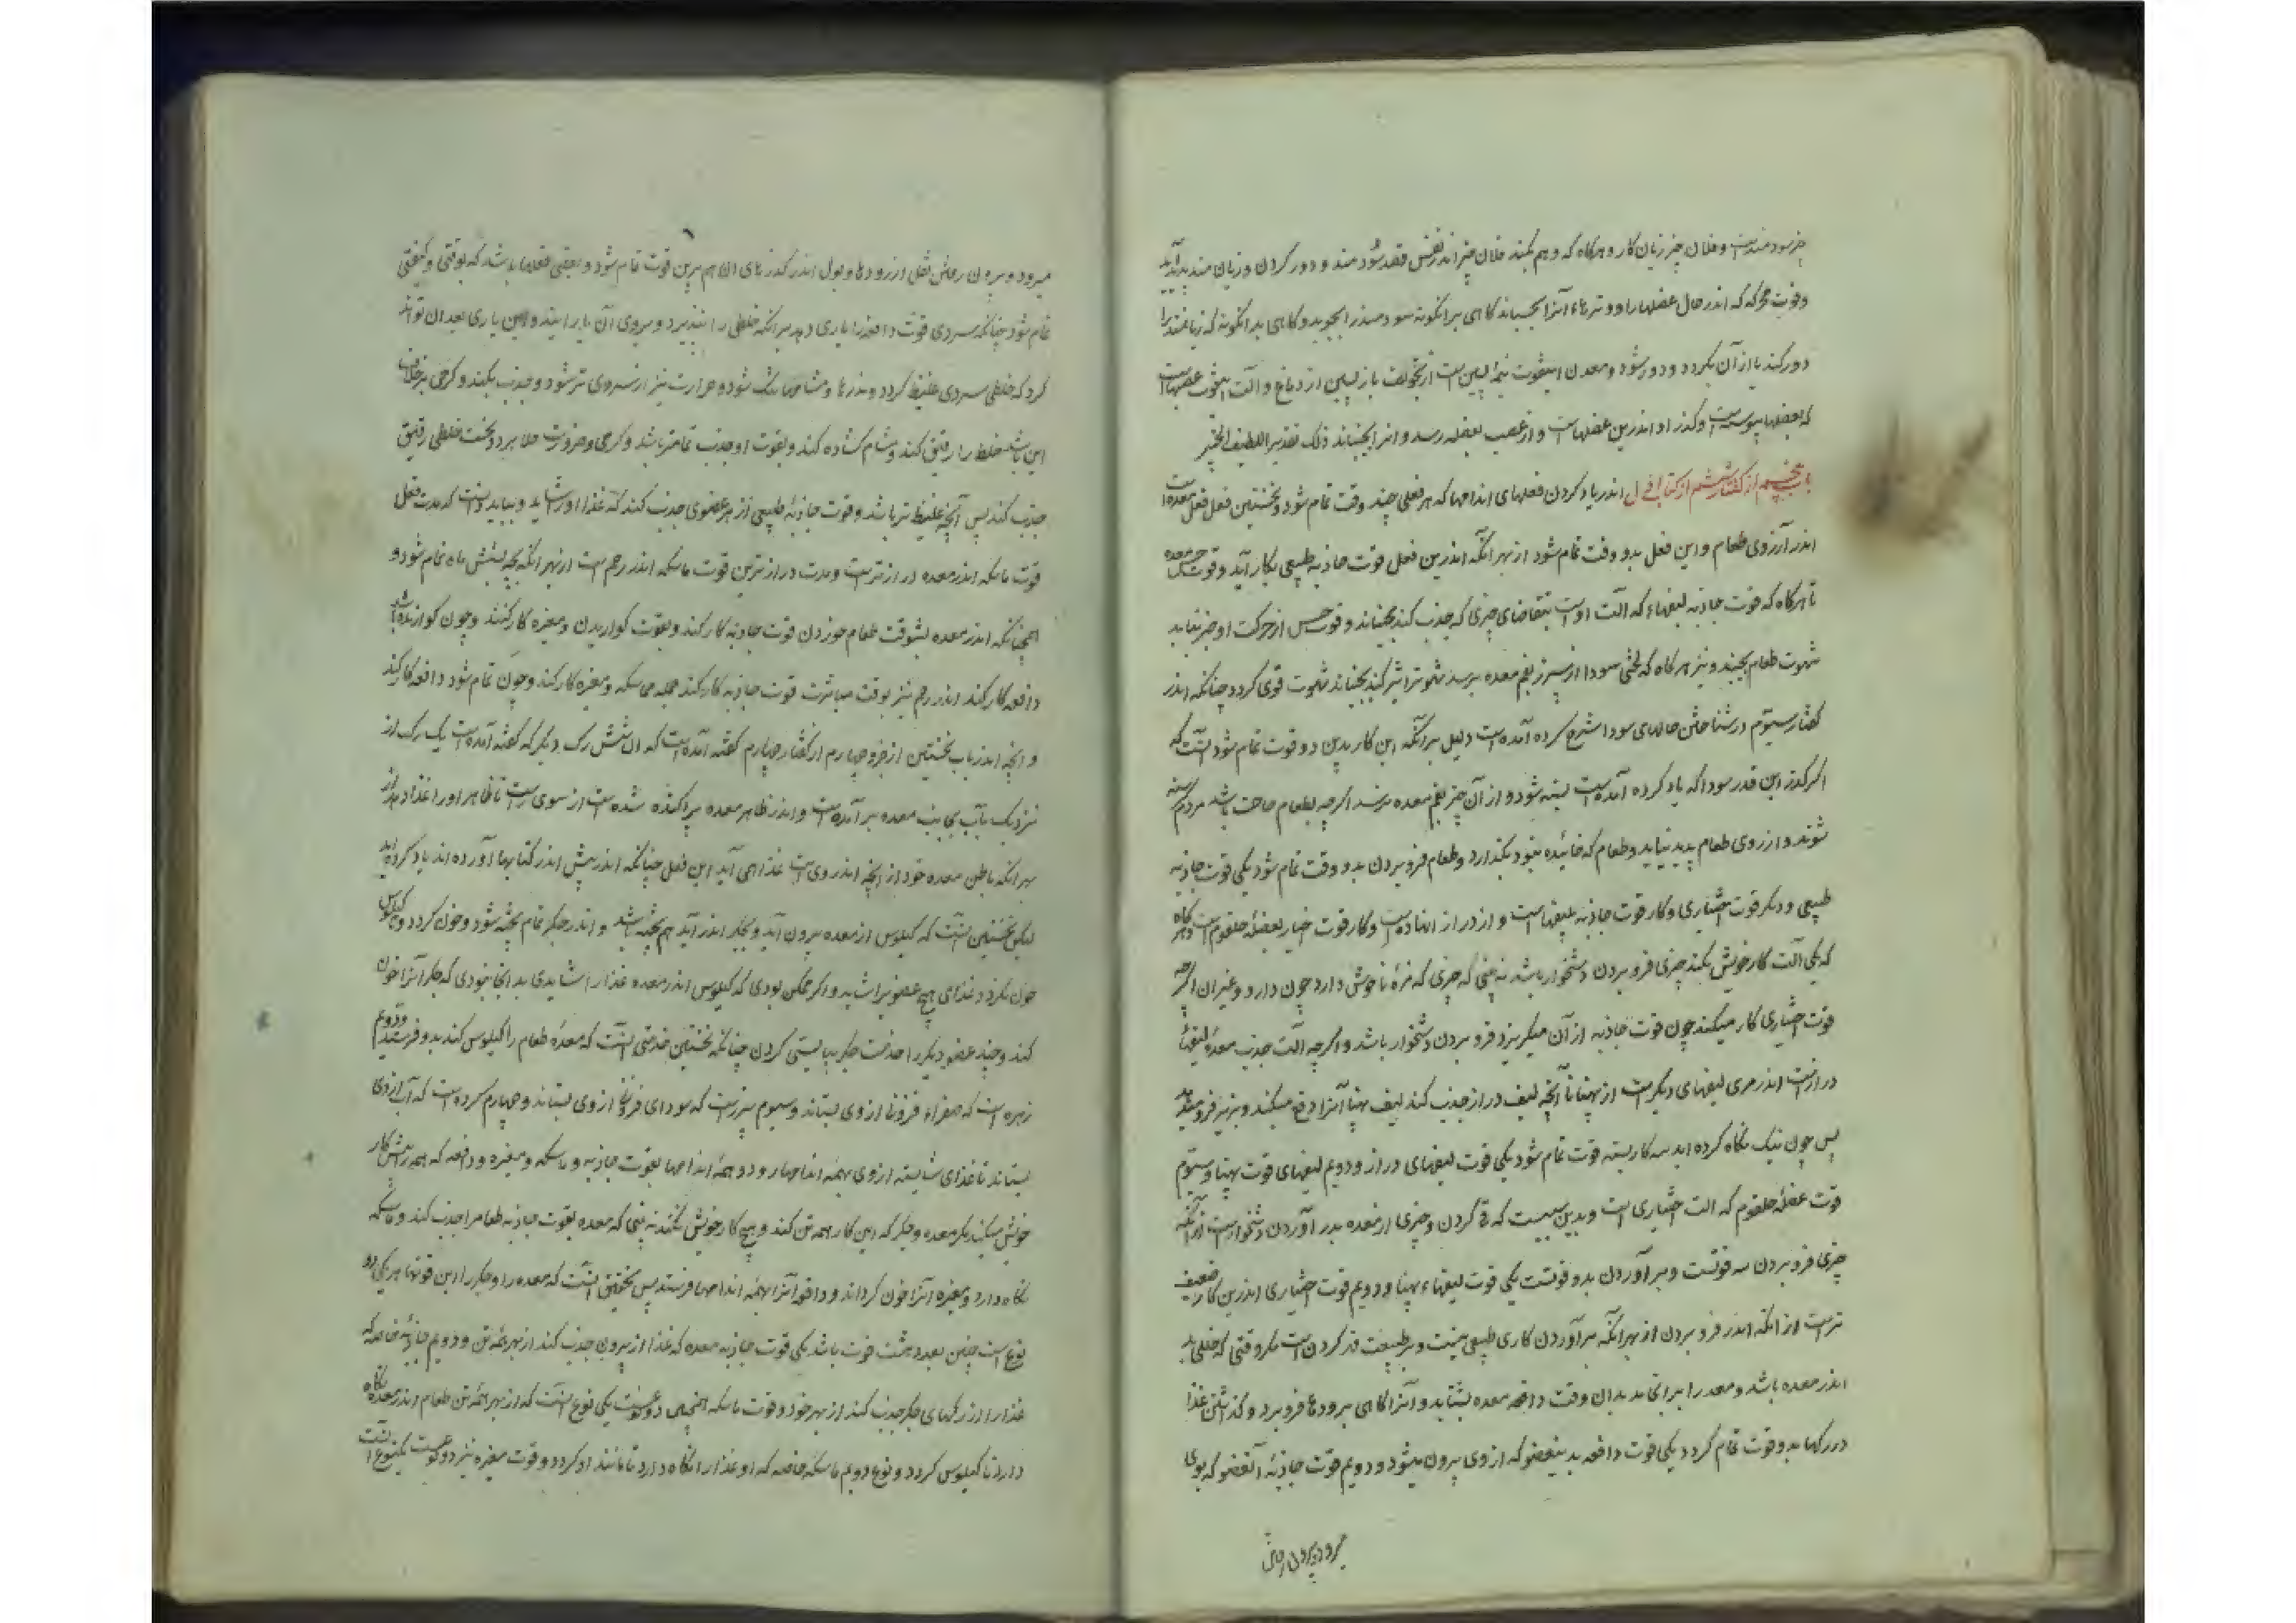 چیز سودمندست و فلان چیز زیان کار و هرکاه که وهم بکند فلان چیز اندر نفس قصد سود مند و دور کردن و زیان مند پدید آید
و قوت محرکه که اندر حال عضلها را و وترها را بجنباند کاهی بر انکونه سودمند را بجوید و کاهی بدانکونه که زیانمند را
دور کند یا از آن بکردد و دور شود و معدن این قوت نیمه پسین است از تجویف بازپسین از دماغ و آلت این قوت عصبهاست
که بعضلها پیوسته است و کذر او اندرین عضلهاست و از عصب بعضله رسد و انرا بجنباند ذلک تقدیر اللطیف الخبیر
باب پنجم از کفتار ششم از کتاب اول اندر یاد کردن فعلهای اندامها که هر فعلی چند وقت تمام شود و نخستین فعل فعل معده است
اندر آرزوی طعام و این فعل بدو وقت تمام شود از بهر انکه اندرین فعل قوت جاذبه طبیعی بکار آید و قوت حس معده
تا هرکاه که قوت جاذبه لیفهاء که آلت اوست بتقاضای چیزی که جذب کند بجنباند و قوت حس از حرکت او خبر بیابد
شهوت طعام بجنبد و نیز هرکاه که لختی سودا از سپرز بفم معده برسد شهوت قوی کردد چنانکه اندر
کفتار سیوم در شناختن حالهای سودا شرح کرده آمده است دلیل بر آنکه این کار بدین دو قوت تمام شود آنست که
اکر کذر این قدر سودا که یاد کرده آمده است بسته شود و از آن چیز بفم معده نرسد اکرچه بطعام حاجت باشد مردم کرسنه
نشوند و ارزوی طعام پدید نیاید و طعام که خائیده بود بکذارد و طعام فرو بردن بدو وقت تمام شود یکی قوت جاذبه
طبیعی و دیکر قوت اختیاری و کار قوت جاذبه بلیفهاست و از دراز انهاده است و کار قوت اختیار بعضله حلقوم است و هرکاه
که یکی آلت کار خویش نکند چیزی فرو بردن دشخوار باشد نه بینی که چیزی که مزهٔ ناخوش دارد چون دارو و غیر ان اکرچه
قوت اختیاری کار میکند چون قوت جاذبه از آن میکریزد فرو بردن دشخوار باشد و اکرچه آلت جذب معده لیفهاء
درازست اندر مری لیفهای دیکرست از پهنا تا آنچه لیف دراز جذب کند لیف پهنا آنرا دفع میکند و بزیر فرو میفشارد
پس چون نیک نکاه کرده اید سه کار بسته قوت تمام شود یکی قوت لیفهای دراز و دویم لیفهای قوت پهنا و سیوم
قوت عضلهٔ حلقوم که الت اختیاری است و بدین سببست که قی کردن و چیزی از معده بدر آوردن دشخوارست از آنکه
چیزی فرو بردن سه قوتست و بر آوردن بدو قوتست یکی قوت لیفهاء پهنا و دویم قوت اختیاری اندرین کار ضعیف
ترست از انکه اندر فرو بردن از بهر انکه بر آوردن کاری طبیعی نیست و بر طبیعت قهر کردن است مکر وقتی که خلطی بد
اندر معده باشد و معده را برنجاند بدان وقت دافعه معده بشتابد و آنرا کاهی برودها فرو برد و کذاشتن غذا
در رکها بدو قوت تمام کردد یکی قوت دافعه بدین عضو که از وی بیرون میشود و دویم قوت جاذبهٔ آن عضو که بوی
میرود و بیرون رفتن
میرود و بیرون رفتن ثفل از رودها و بول اندر کذرهای ان هم برین قوت تمام شود و بعضی فعلها باشد که بوقتی و کیفیتی
تمام شود چنانکه سردی قوت دافعه را یاری دهد بر انکه خلطی را نپذیرد و بروی آن باز ایستد و این یاری بعد ان تواند
کرد که خلطی سردی غلیظ کردد و منفذها و مشامها تنک شود و حرارت نیز از سردی تیز شود و جذب بکند و کرمی بر خلاف
این باشد خلط را رقیق کند و مشام کشاده کند و بقوت او جذب تمامتر باشد و کرمی و ضرورت خلا ببرد و نخست خلطی رقیق
جذب کند پس آنچه غلیظ تر باشد و قوت جاذبهٔ طبیعی از هر عضوی جذب کند که غذا او را شاید و بباید دانست که مدت فعل
قوت ماسکه اندر معده درازترست و مدت درازترین قوت ماسکه اندر رحم است از بهر انکه بچه بشش ماه تمام شود و
همچنانکه اندر معده بشوقت طعام خوردن قوت جاذبه کار کند و بقوت کواریدن و مغیره کار کنند و چون کوارنده شد
دافعه کار کند اندر رحم نیز بوقت مباشرت قوت جاذبه کار کند جمله ماسکه و مغیره کار کند و چون تمام شود دافعه کار کند
و انچه اندر باب نخستین از جزو چهارم از کفتار چهارم کفته آمده است که ان شش رک دیکر که کفته آمده است یک رک از
نزدیک باب بجانب معده بر آمده است و اندر ظاهر معده پراکنده شده است از سوی راست تا ظاهر او را غذا دهد از
بهر انکه باطن معده خود از انچه اندر وی است غذا همی آید این فعل چنانکه اندر پیش اندر کتابها آورده اند یاد کرده اند
لیکن نخستین آنست که کیلوس از معده بیرون آید و بجکر اندر آید هم پخته باشد و اندر جکر تمام پخته شود و خون کردد و کیلوس
خون نکردد غذای هیچ عضو نباشد و اکر ممکن بودی که کیلوس اندر معده غذا را شایدی بدانجا نبودی که جکر آنرا خون
کند و چند عضو دیکر را خدمت جکر ببایستی کردن چنانکه نخستین خدمتی آنست که معده طعام را کیلوس کند بدو فرستد و دویم
زهره است که صفراء فزونی از وی بستاند و سیوم سپرزست که سودای فزونی از وی بستاند و چهارم کرده است که آب از وی
بستاند تا غذای شایسته از وی بهمه اندامها رود و همه اندامها بقوت جاذبه و ماسکه و مغیره و دافعه که همه را هست کار
خویش میکنند مکر معده و جکر که این کار همه تن کند و هیچ کار خویش نکنند نه بینی که معده بقوت جاذبه طعام را جذب کند و ماسکه
نکاه دارد و مغیره آنرا خون کرداند و دافعه آنرا بهمه اندامها فرستد پس تحقیق آنست که معده را و جکر را این قوتها هر یکی دو
نوع است چنین بعدد هشت قوت باشد یکی قوت جاذبه معده که غذا از بیرون جذب کند از بهر همه تن و دویم جاذبهٔ خاصه که
غذا را از رکهای جکر جذب کند از بهر خود و قوت ماسکه همچنین دو نوعست یکی نوع آنست که از بهر همه تن طعام اندر معده نکاه
دارد تا کیلوس کردد و نوع دویم ماسکه خاصه که او غذا را نکاه دارد تا مانند او کردد و قوت مغیره نیز دو نوعست یکنوع آنست